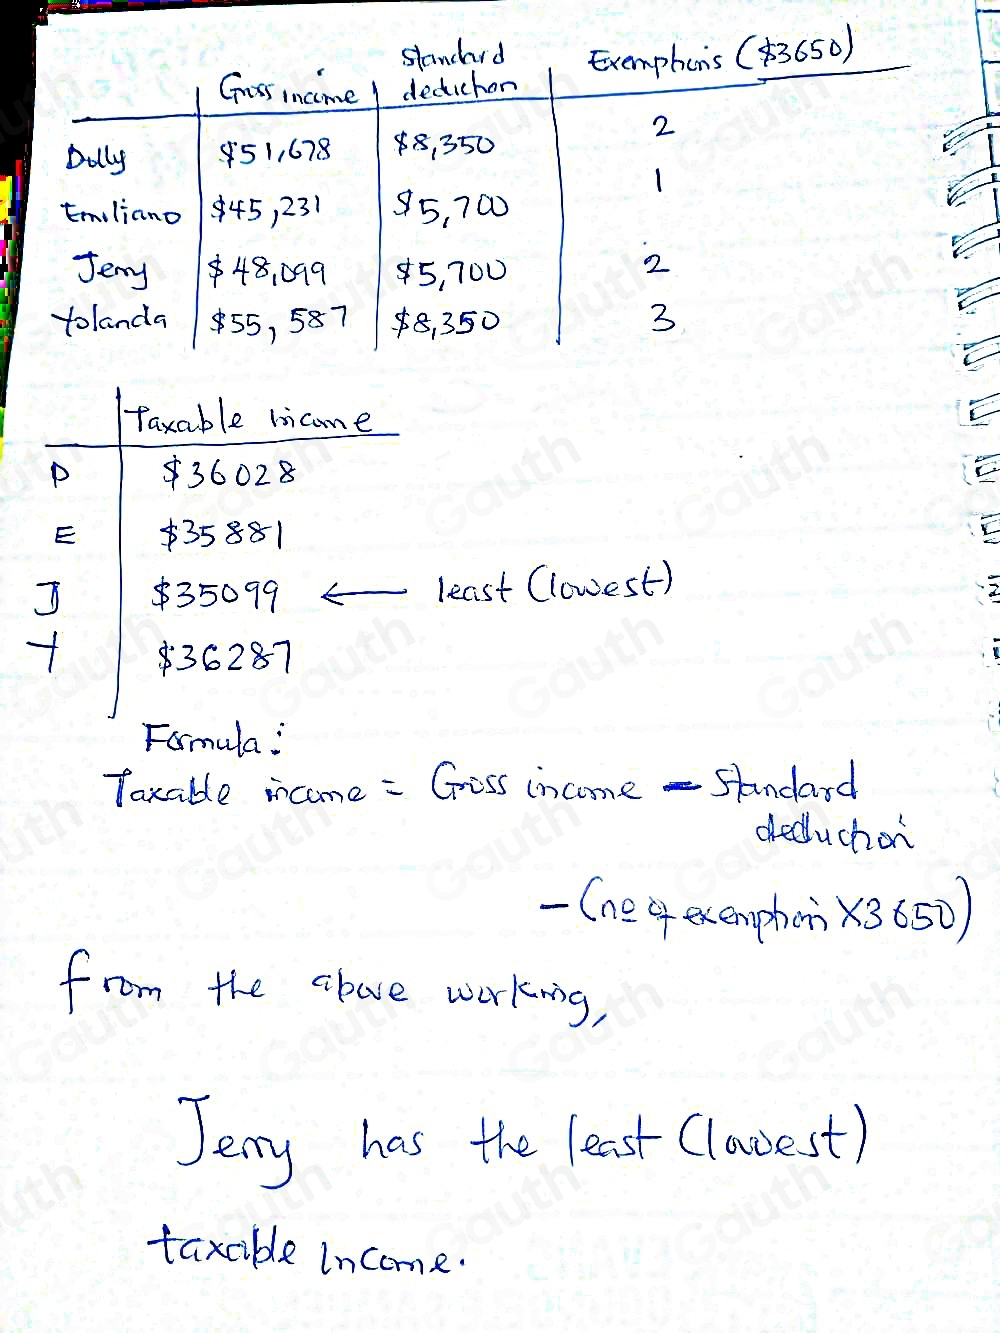 Gross income | Standard deduction | Exemptions ($3650)
Dolly | $51,678 | $8,350 | 2
Emiliano | $45,231 | $5,700 | 1
Jerry | $48,099 | $5,700 | 2
Yolanda | $55,587 | $8,350 | 3
Taxable income
D | $36028
E | $35881
J | $35099 ← least (lowest)
Y | $36287
Formula:
Taxable income = Gross income - Standard
deduction
- (no of exemption X3650)
from the above working,
Jerry has the least (lowest)
taxable income.